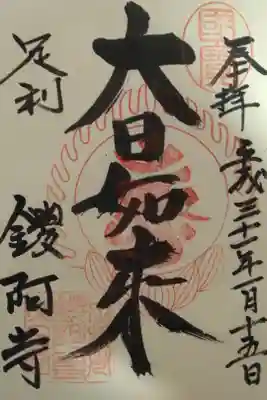 奉拝
平成三十一年一月十五日
大日如来
足利
鑁阿寺